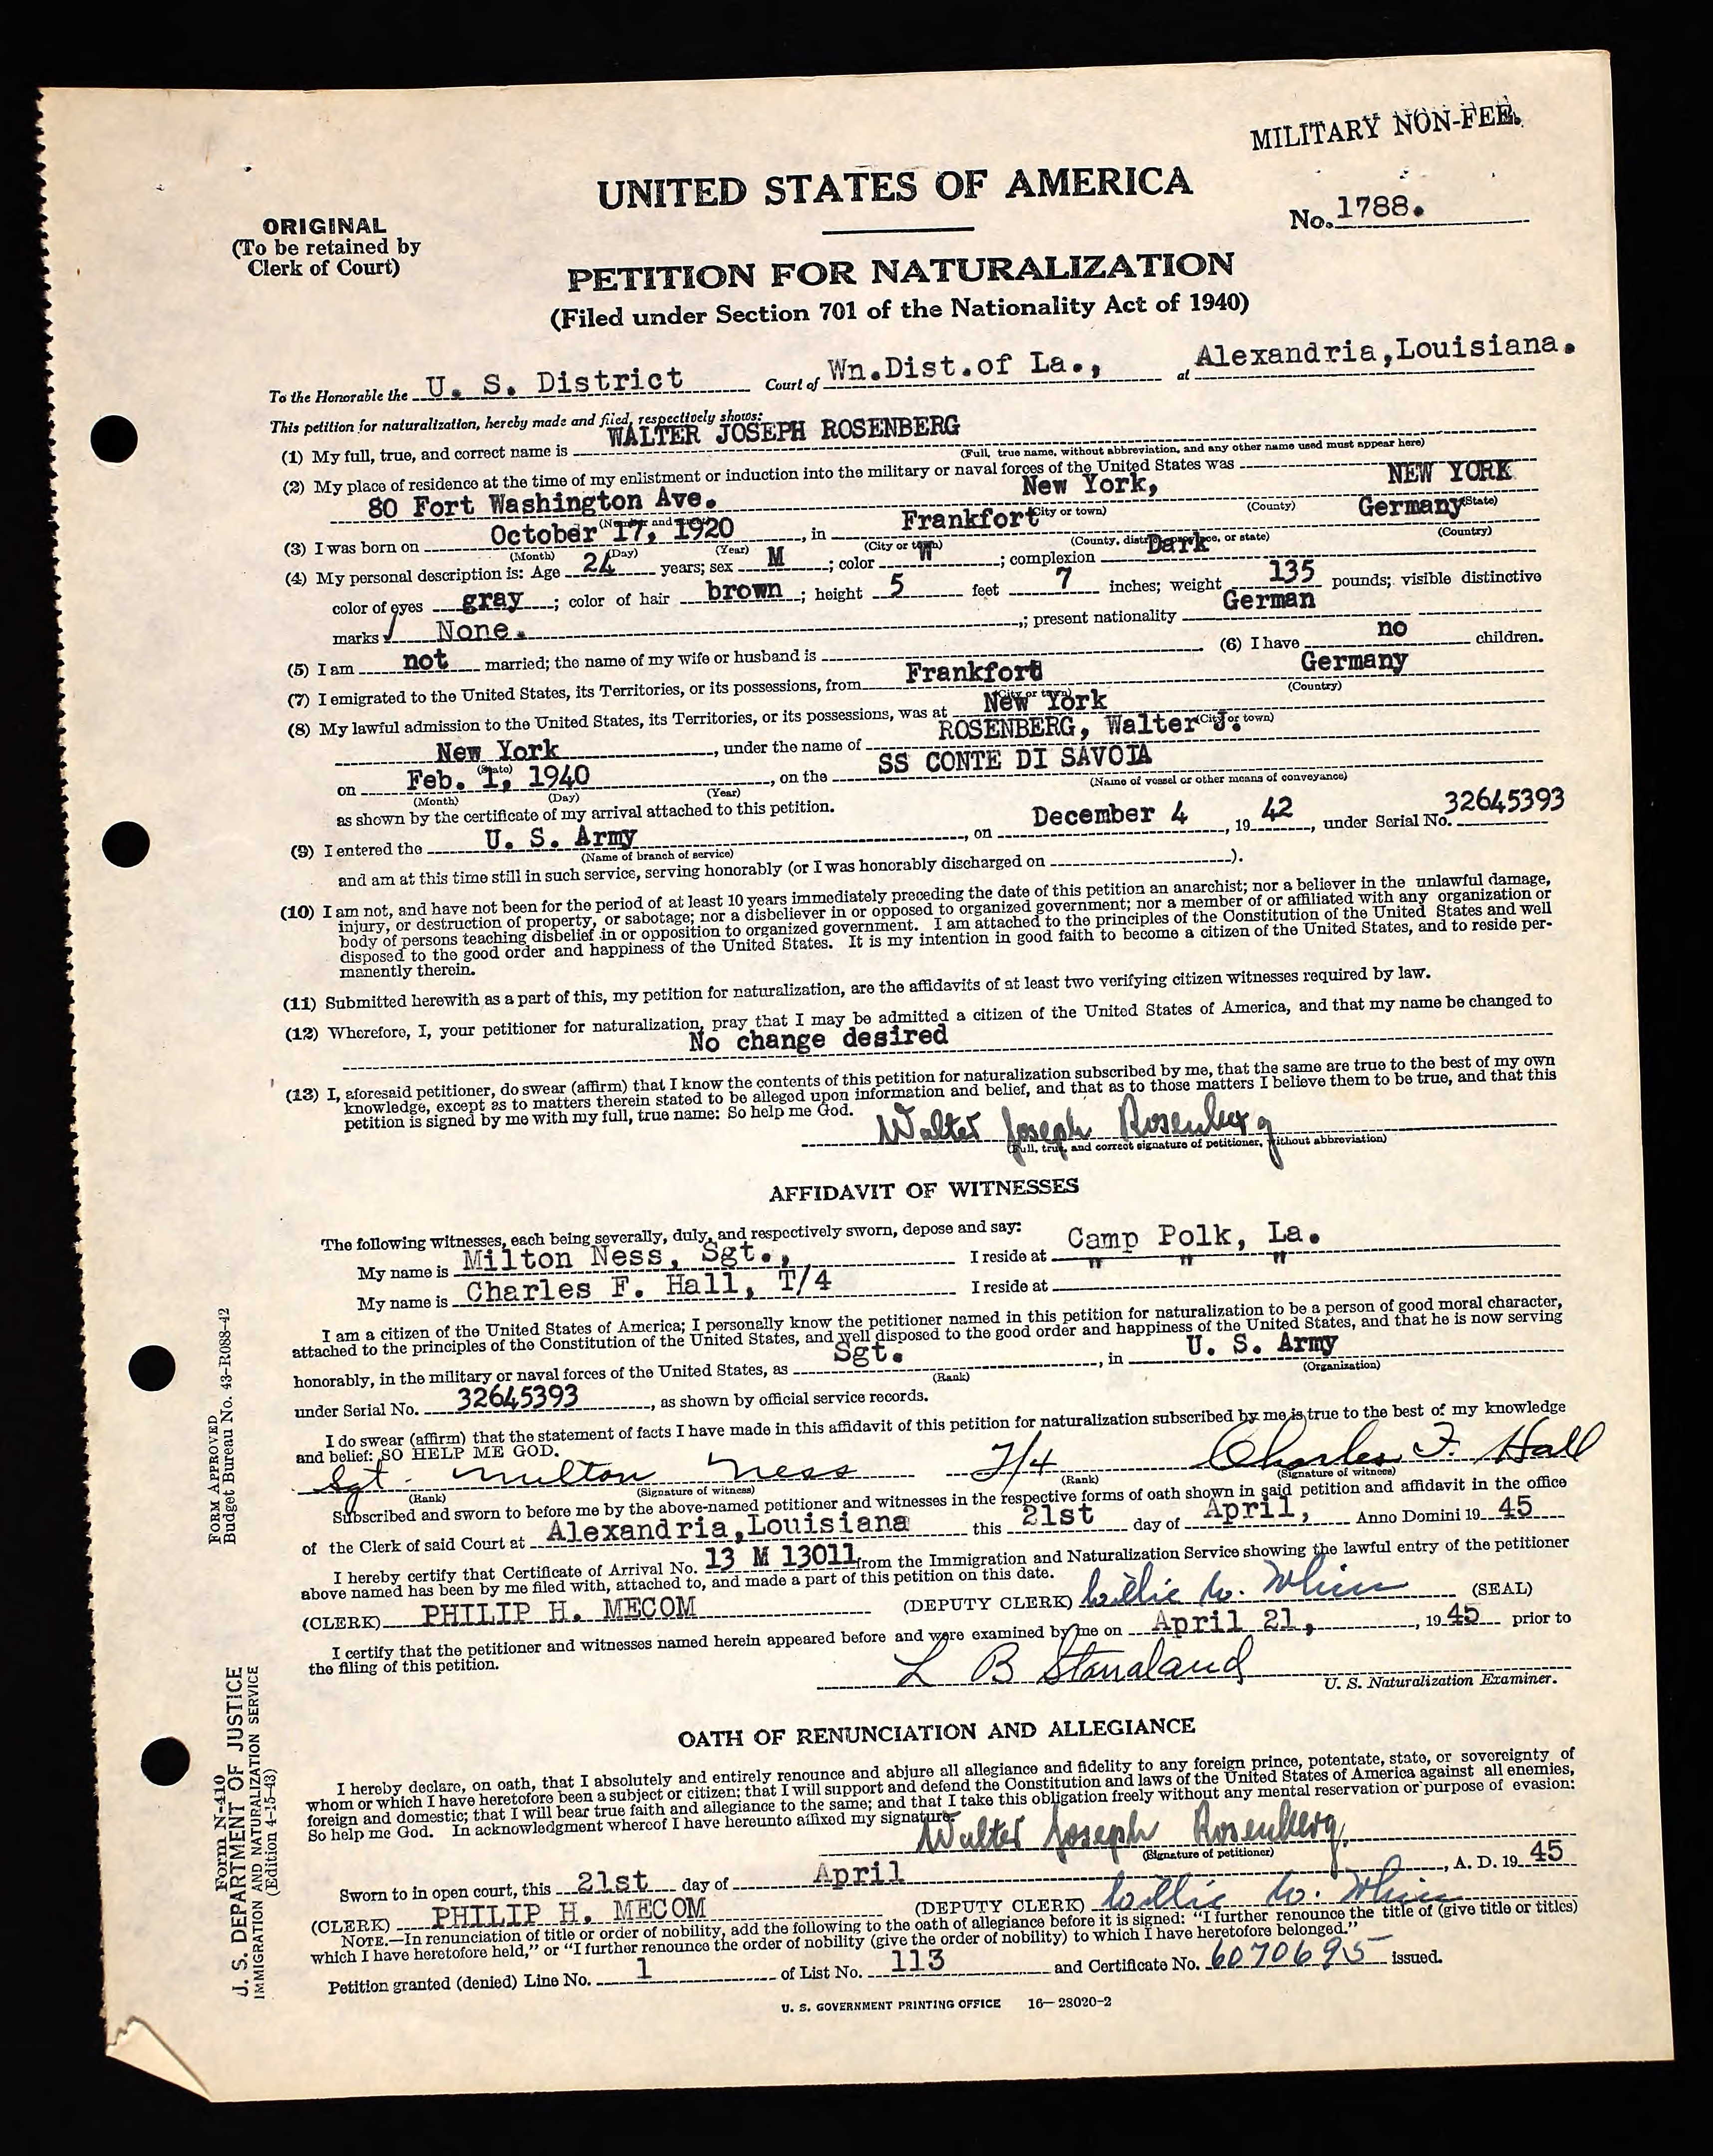 MILITARY NON-FEE.
UNITED STATES OF AMERICA
No. 1788.
ORIGINAL
(To be retained by
Clerk of Court)
PETITION FOR NATURALIZATION
(Filed under Section 701 of the Nationality Act of 1940)
To the Honorable the U. S. District Court of Wn.Dist.of La., at Alexandria,Louisiana.
This petition for naturalization, hereby made and filed, respectively shows:
(1) My full, true, and correct name is WALTER JOSEPH ROSENBERG
(Full, true name, without abbreviation, and any other name used must appear here)
(2) My place of residence at the time of my enlistment or induction into the military or naval forces of the United States was
80 Fort Washington Ave. New York, NEW YORK
(Number and street) (City or town) (County) (State)
(3) I was born on October 17, 1920, in Frankfort Germany
(Month) (Day) (Year) (City or town) (County, district, province, or state) (Country)
(4) My personal description is: Age 24 years; sex M; color W; complexion Dark
color of eyes gray; color of hair brown; height 5 feet 7 inches; weight 135 pounds; visible distinctive
marks / None.; present nationality German
(5) I am not married; the name of my wife or husband is . (6) I have no children.
(7) I emigrated to the United States, its Territories, or its possessions, from Frankfort Germany
(City or town) (Country)
(8) My lawful admission to the United States, its Territories, or its possessions, was at New York
(City or town)
New York, under the name of ROSENBERG, Walter J.
(State)
on Feb. 1, 1940, on the SS CONTE DI SAVOIA
(Month) (Day) (Year) (Name of vessel or other means of conveyance)
as shown by the certificate of my arrival attached to this petition.
(9) I entered the U. S. Army, on December 4, 1942, under Serial No. 32645393
(Name of branch of service)
and am at this time still in such service, serving honorably (or I was honorably discharged on ).
(10) I am not, and have not been for the period of at least 10 years immediately preceding the date of this petition an anarchist; nor a believer in the unlawful damage,
injury, or destruction of property, or sabotage; nor a disbeliever in or opposed to organized government; nor a member of or affiliated with any organization or
body of persons teaching disbelief in or opposition to organized government. I am attached to the principles of the Constitution of the United States and well
disposed to the good order and happiness of the United States. It is my intention in good faith to become a citizen of the United States, and to reside per-
manently therein.
(11) Submitted herewith as a part of this, my petition for naturalization, are the affidavits of at least two verifying citizen witnesses required by law.
(12) Wherefore, I, your petitioner for naturalization, pray that I may be admitted a citizen of the United States of America, and that my name be changed to
No change desired
(13) I, aforesaid petitioner, do swear (affirm) that I know the contents of this petition for naturalization subscribed by me, that the same are true to the best of my own
knowledge, except as to matters therein stated to be alleged upon information and belief, and that as to those matters I believe them to be true, and that this
petition is signed by me with my full, true name: So help me God.
Walter Joseph Rosenberg
(Full, true, and correct signature of petitioner, without abbreviation)
AFFIDAVIT OF WITNESSES
The following witnesses, each being severally, duly, and respectively sworn, depose and say:
My name is Milton Ness, Sgt., I reside at Camp Polk, La.
My name is Charles F. Hall, T/4 I reside at " " "
I am a citizen of the United States of America; I personally know the petitioner named in this petition for naturalization to be a person of good moral character,
attached to the principles of the Constitution of the United States, and well disposed to the good order and happiness of the United States, and that he is now serving
honorably, in the military or naval forces of the United States, as Sgt., in U. S. Army
(Rank) (Organization)
under Serial No. 32645393, as shown by official service records.
I do swear (affirm) that the statement of facts I have made in this affidavit of this petition for naturalization subscribed by me is true to the best of my knowledge
and belief: SO HELP ME GOD.
Sgt. Milton Ness T/4 Charles F. Hall
(Rank) (Signature of witness) (Rank) (Signature of witness)
Subscribed and sworn to before me by the above-named petitioner and witnesses in the respective forms of oath shown in said petition and affidavit in the office
of the Clerk of said Court at Alexandria,Louisiana this 21st day of April, Anno Domini 1945
I hereby certify that Certificate of Arrival No. 13 M 13011 from the Immigration and Naturalization Service showing the lawful entry of the petitioner
above named has been by me filed with, attached to, and made a part of this petition on this date.
(CLERK) PHILIP H. MECOM (DEPUTY CLERK) Willie W. (SEAL)
I certify that the petitioner and witnesses named herein appeared before and were examined by me on April 21, 1945 prior to
the filing of this petition.
L B Stanaland
U. S. Naturalization Examiner.
OATH OF RENUNCIATION AND ALLEGIANCE
I hereby declare, on oath, that I absolutely and entirely renounce and abjure all allegiance and fidelity to any foreign prince, potentate, state, or sovereignty of
whom or which I have heretofore been a subject or citizen; that I will support and defend the Constitution and laws of the United States of America against all enemies,
foreign and domestic; that I will bear true faith and allegiance to the same; and that I take this obligation freely without any mental reservation or purpose of evasion:
So help me God. In acknowledgment whereof I have hereunto affixed my signature.
Walter Joseph Rosenberg.
(Signature of petitioner)
Sworn to in open court, this 21st day of April, A. D. 1945
(CLERK) PHILIP H. MECOM (DEPUTY CLERK) Willie W.
NOTE.—In renunciation of title or order of nobility, add the following to the oath of allegiance before it is signed: "I further renounce the title of (give title or titles)
which I have heretofore held," or "I further renounce the order of nobility (give the order of nobility) to which I have heretofore belonged."
Petition granted (denied) Line No. 1 of List No. 113 and Certificate No. 6070695 issued.
U. S. GOVERNMENT PRINTING OFFICE 16—28020-2
FORM APPROVED
Budget Bureau No. 43-R088-42
Form N-410
U. S. DEPARTMENT OF JUSTICE
IMMIGRATION AND NATURALIZATION SERVICE
(Edition 4-15-43)